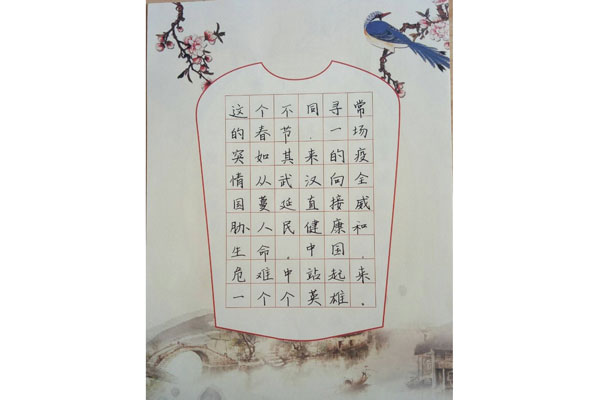 这个不同寻常
的春节.一场
突如其来的疫
情从武汉向全
国蔓延直接威
胁人民健康和
生命。中国.
危难中站起来
一个个英雄。